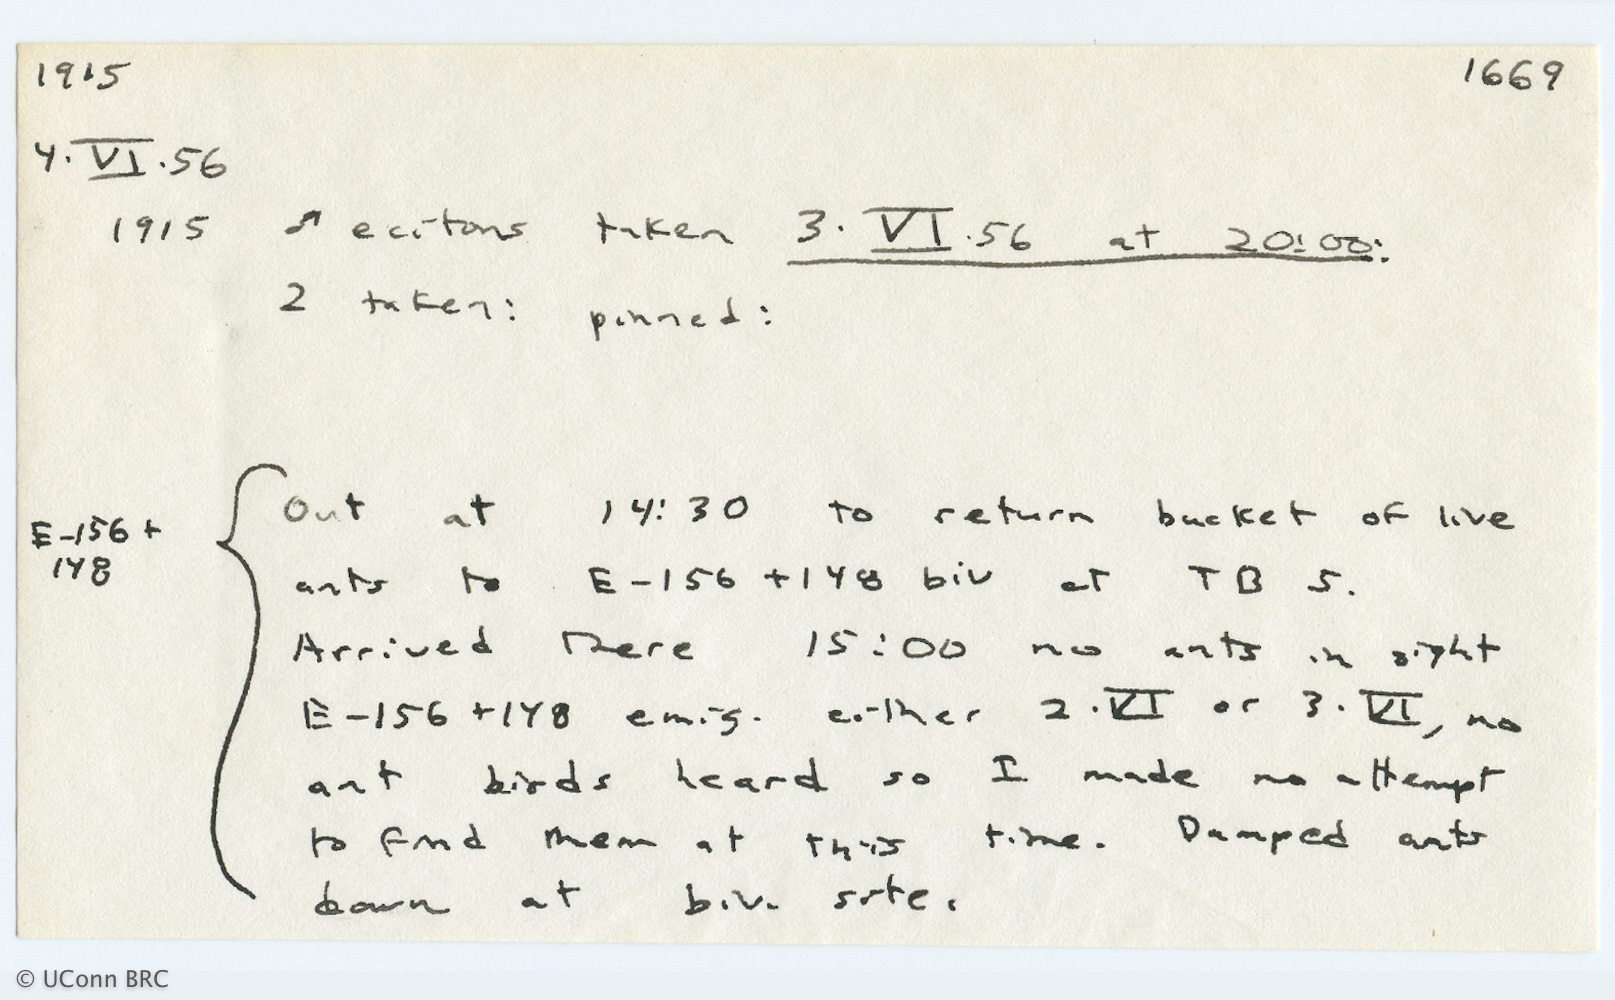 1915 1669
4.VI.56
1915 ♂ ecitons taken 3.VI.56 at 20:00:
2 taken: pinned:
E-156+
148
Out at 14:30 to return bucket of live
ants to E-156+148 biv at TB 5.
Arrived there 15:00 no ants in sight
E-156+148 emig. either 2.VI or 3.VI, no
ant birds heard so I made no attempt
to find them at this time. Dumped ants
down at biv. site.
© UConn BRC